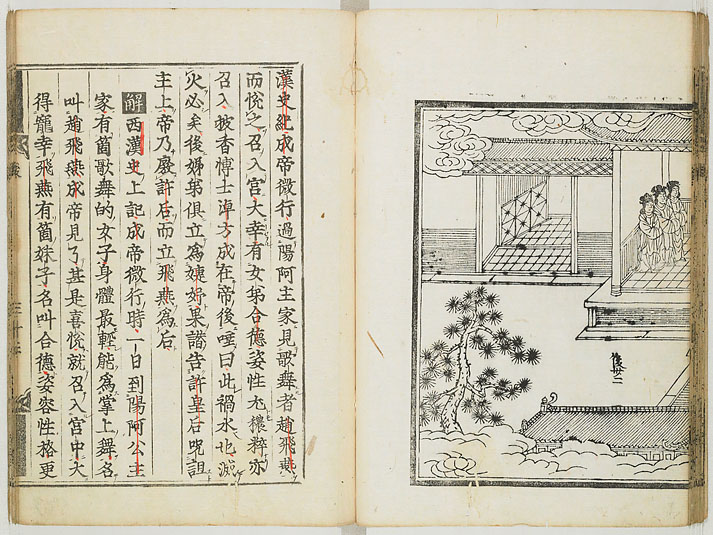 漢史紀成帝微行過陽阿主家見歌舞者趙飛燕
而悅之召入宮大幸有女弟合德姿性尤穠粹亦
召入披香博士淖方成在帝後唾曰此禍水也滅
火必矣後姊弟俱立爲婕妤果譖告許皇后呪詛
主上帝乃廢許后而立飛燕爲后
解 西漢史上記成帝微行時一日到陽阿公主
家有箇歌舞的女子身體最輕能爲掌上舞名
叫趙飛燕成帝見了甚是喜悅就召入宮中大
得寵幸飛燕有箇妹子名叫合德姿容性格更